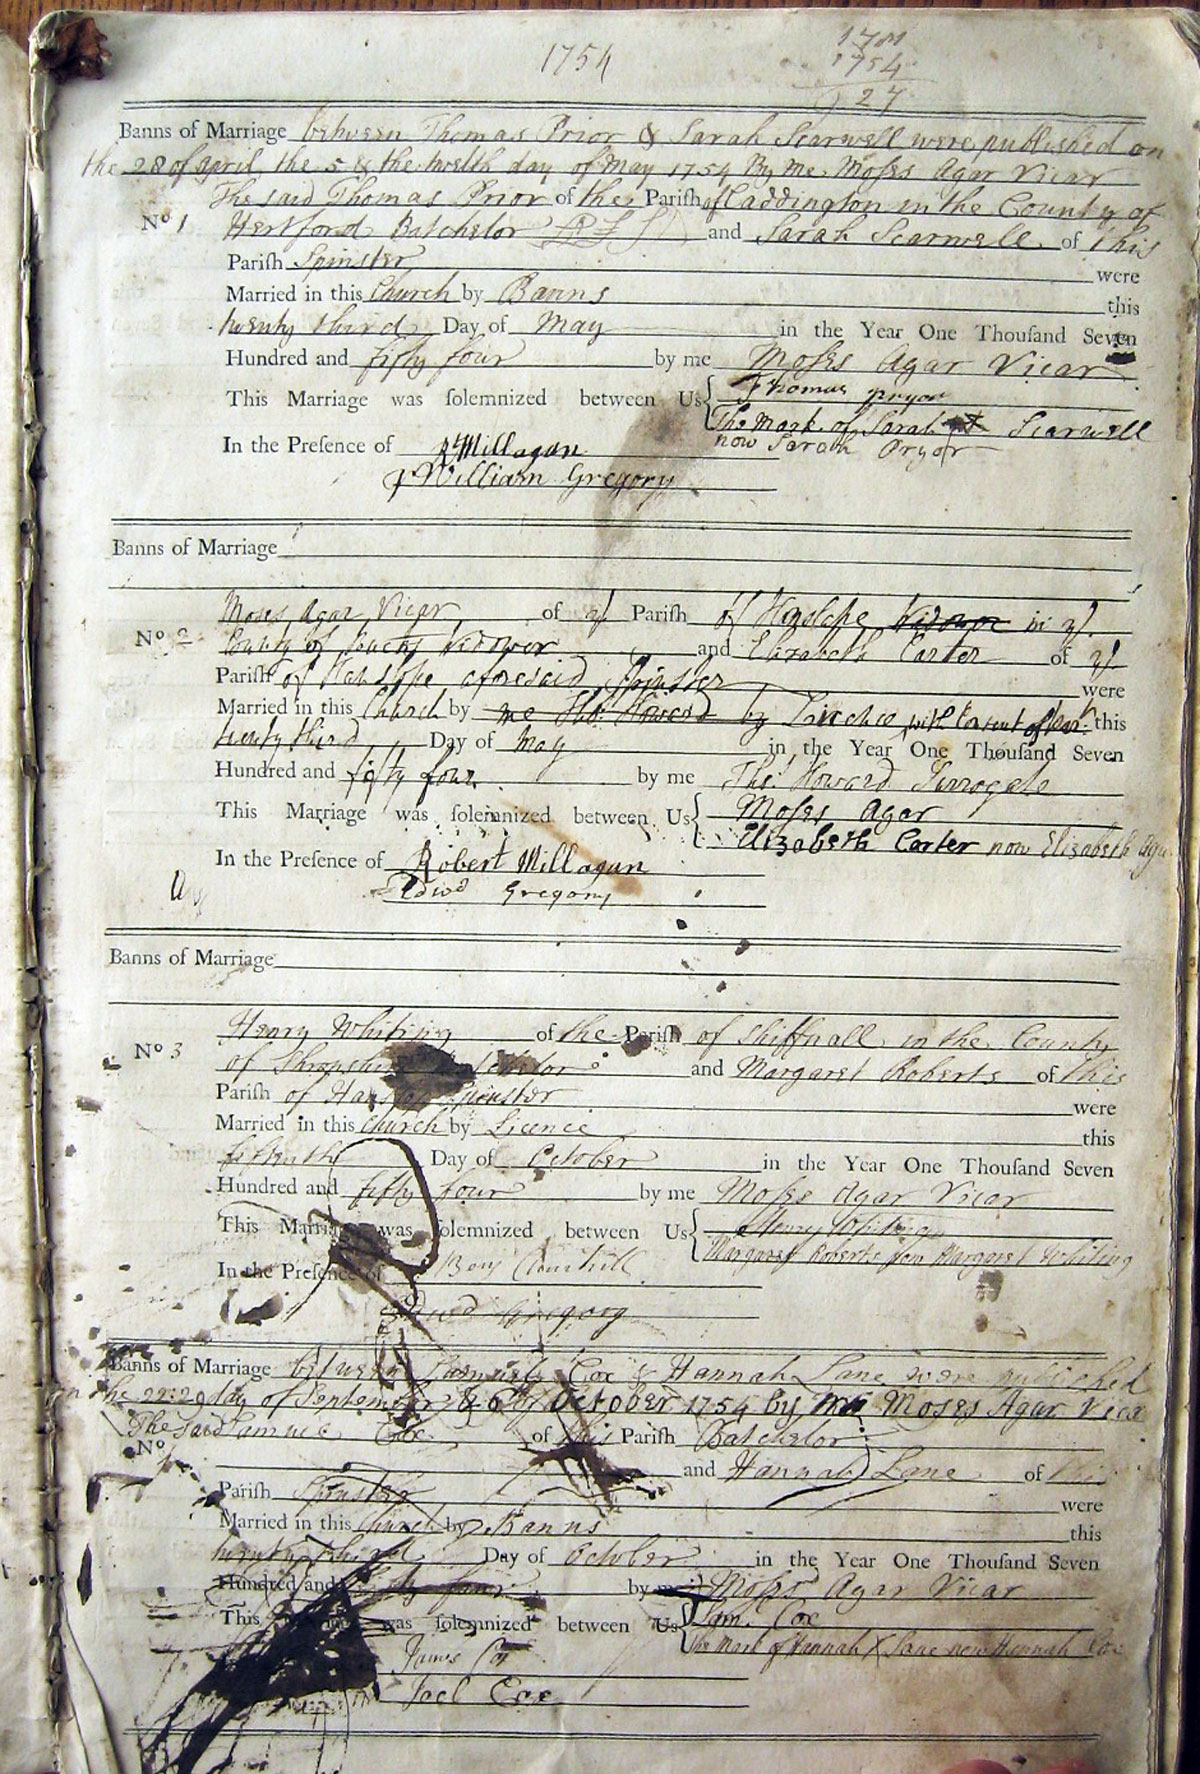 1754
1781
1754
27
Banns of Marriage between Thomas Prior & Sarah Scarwell were published on
the 28 of april, the 5 & the twelth day of May 1754 By me Moses Agar Vicar
The said Thomas Prior of the Parish of Caddington in the County of
No 1 Hertford Batchelor and Sarah Scarwell of this
Parish Spinster were
Married in this Church by Banns this
twenty third Day of May in the Year One Thousand Seven
Hundred and fifty four by me Moses Agar Vicar
This Marriage was solemnized between Us Thomas pryor
The Mark of Sarah Scarwell
now Sarah Pryor
In the Presence of R Millagan
William Gregory
Banns of Marriage
Moses Agar Vicar of ye Parish of Hanslope Vidower in ye
No 2 County of Bucks Vidower and Elizabeth Carter of ye
Parish of Hanslope aforesaid Spinster were
Married in this Church by me Tho: Howard by Licence with Consent of this
twenty third Day of May in the Year One Thousand Seven
Hundred and fifty four by me Tho: Howard Surrogate
This Marriage was solemnized between Us Moses Agar
Elizabeth Carter now Elizabeth Agar
In the Presence of Robert Millagan
Edwd Gregory
Banns of Marriage
Henry Whiting of the Parish of Shiffnall in the County
No 3 of Shropshire Batchelor and Margaret Roberts of this
Parish of Hanslope Spinster were
Married in this Church by Licence this
fifteenth Day of October in the Year One Thousand Seven
Hundred and fifty four by me Moses Agar Vicar
This Marriage was solemnized between Us Henry Whiting
Margaret Roberts now Margaret Whiting
In the Presence of Benj Churchill
Edwd Gregory
Banns of Marriage between Samuel Cox & Hannah Lane were published
on the 22: 29 day of September & 6 of October 1754 by me Moses Agar Vicar
The said Samuel Cox of this Parish Batchelor
No and Hannah Lane of this
Parish Spinster were
Married in this Church by Banns this
twenty third Day of October in the Year One Thousand Seven
Hundred and fifty four by me Moses Agar Vicar
This was solemnized between Us Sam. Cox
The Mark of Hannah X Lane now Hannah Cox
James Cox
Joel Cox